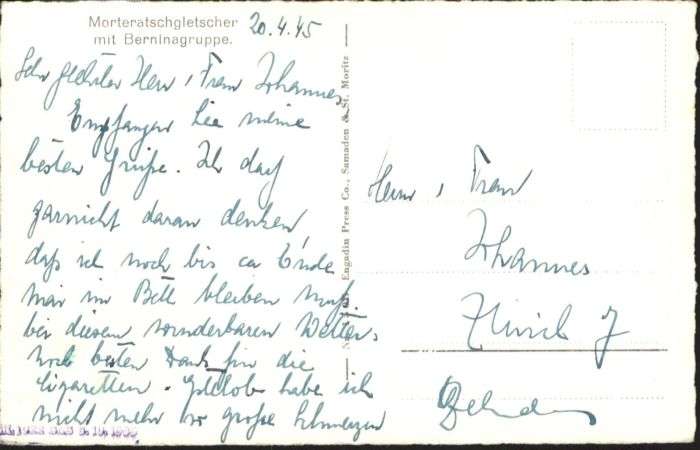 Morteratschgletscher
mit Berninagruppe.
20.4.45
Sehr geehrter Herr, Frau Johannes
Empfangen Sie meine
besten Grüße. Ich darf
garnicht daran denken,
daß ich noch bis ca Ende
Mai im Bett bleiben muß.
bei diesem wunderbaren Wetter.
noch besten Dank für die
Cigaretten. Gottlob habe ich
nicht mehr so große Schmerzen
Engadin Press Co., Samaden & St. Moritz
Herrn, Frau
Johannes
Zürich 7